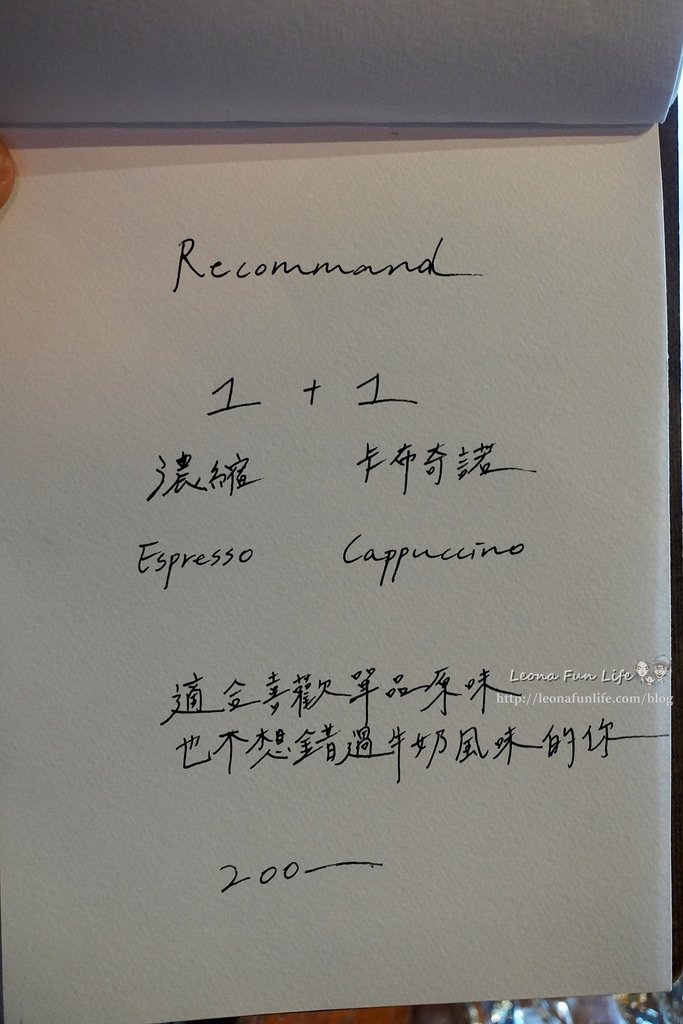 Recommand
1 + 1
濃縮 卡布奇諾
Espresso Cappuccino
適合喜歡單品原味
也不想錯過牛奶風味的你
200
Leona Fun Life
http://leonafunlife.com/blog